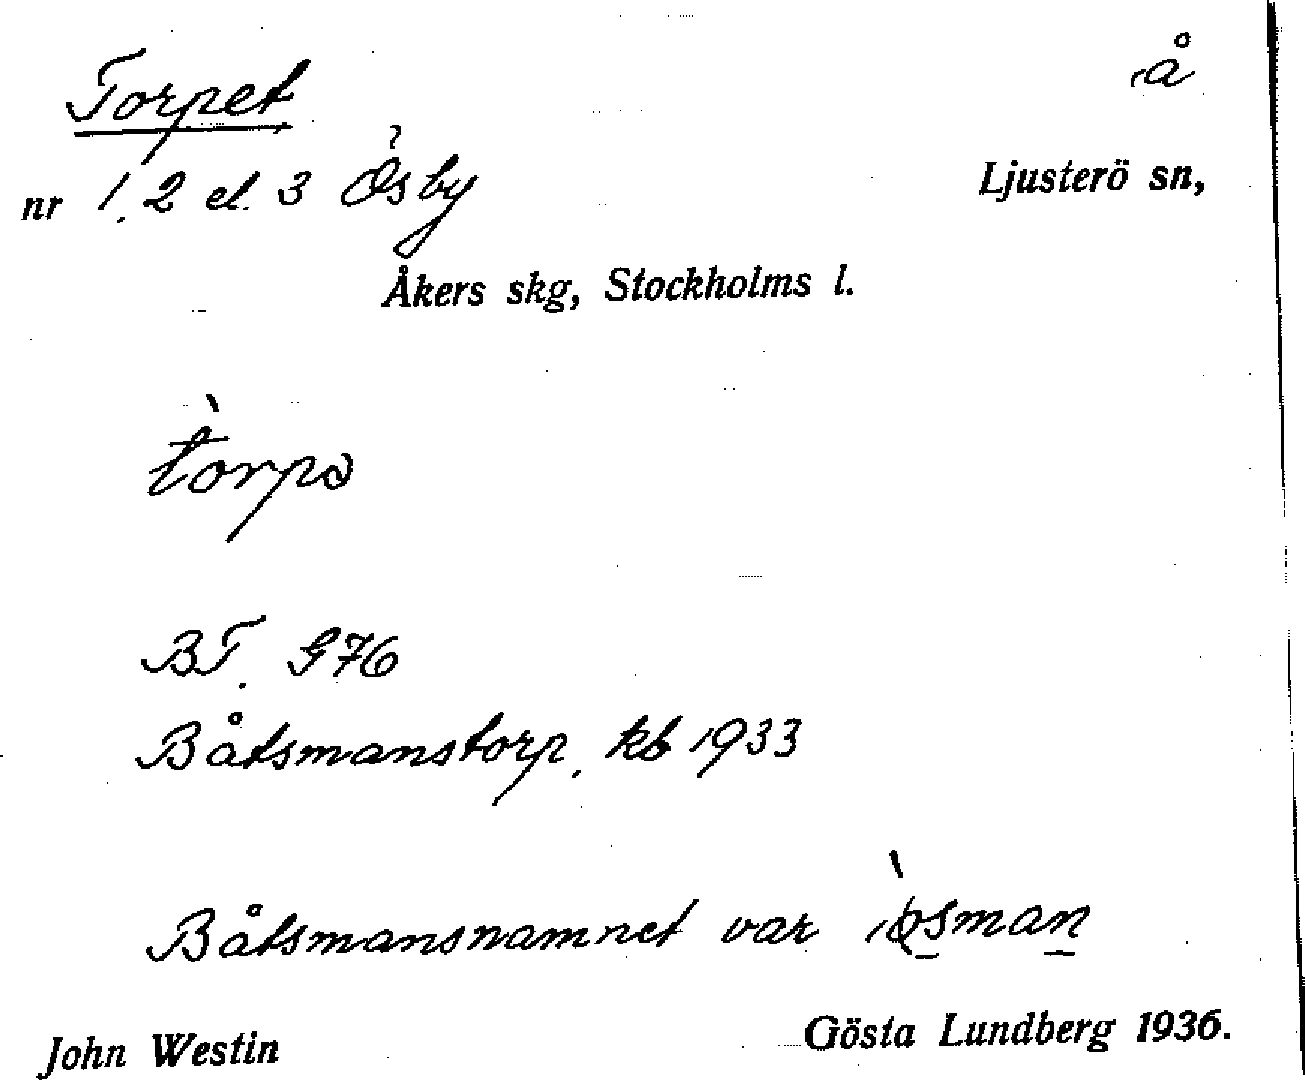 Torpet å
nr 1, 2 el. 3 Ösby Ljusterö sn,
?
Åkers skg, Stockholms l.
tòrpə
BT. 976
Båtsmanstorp, kb 1933
Båtsmansnamnet var
John Westin Gösta Lundberg 1936.